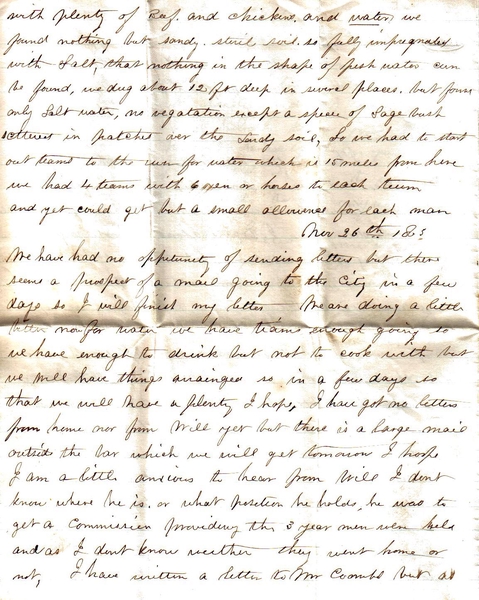 with plenty of Beef. and chickens, and water, we
found nothing but sandy. steril soil. so fully impregnated
with Salt, that nothing in the shape of fresh water can
be found, we dug about 12 ft deep in several places. but found
only Salt water, no vegatation except a specie of Sage bush
in patches over the Sandy soil, So we had to start
out teams to the for water which is 15 miles from here
we had 4 teams with 6 oxen or horses to each team
and yet could get but a small allowance for each man
Nov 26th 1863
We have had no oppertunity of sending letters but there
seems a prospect of a mail going to the City in a few
days so I will finish my letter We are doing a little
better now for water we have teams enough going so
we have enough to drink but not to cook with but
we will have things arrainged so in a few days so
that we will have a plenty I hope, I have got no letters
from home nor from Will yet but there is a large mail
outside the bar which we will get tomorrow I hope
I am a little anxious to hear from Will I dont
know where he is. or what position he holds, he was to
get a Commission providing the 3 year men were held
and as I dont know weather they went home or
not, I have written a letter to Mr Coombs but as